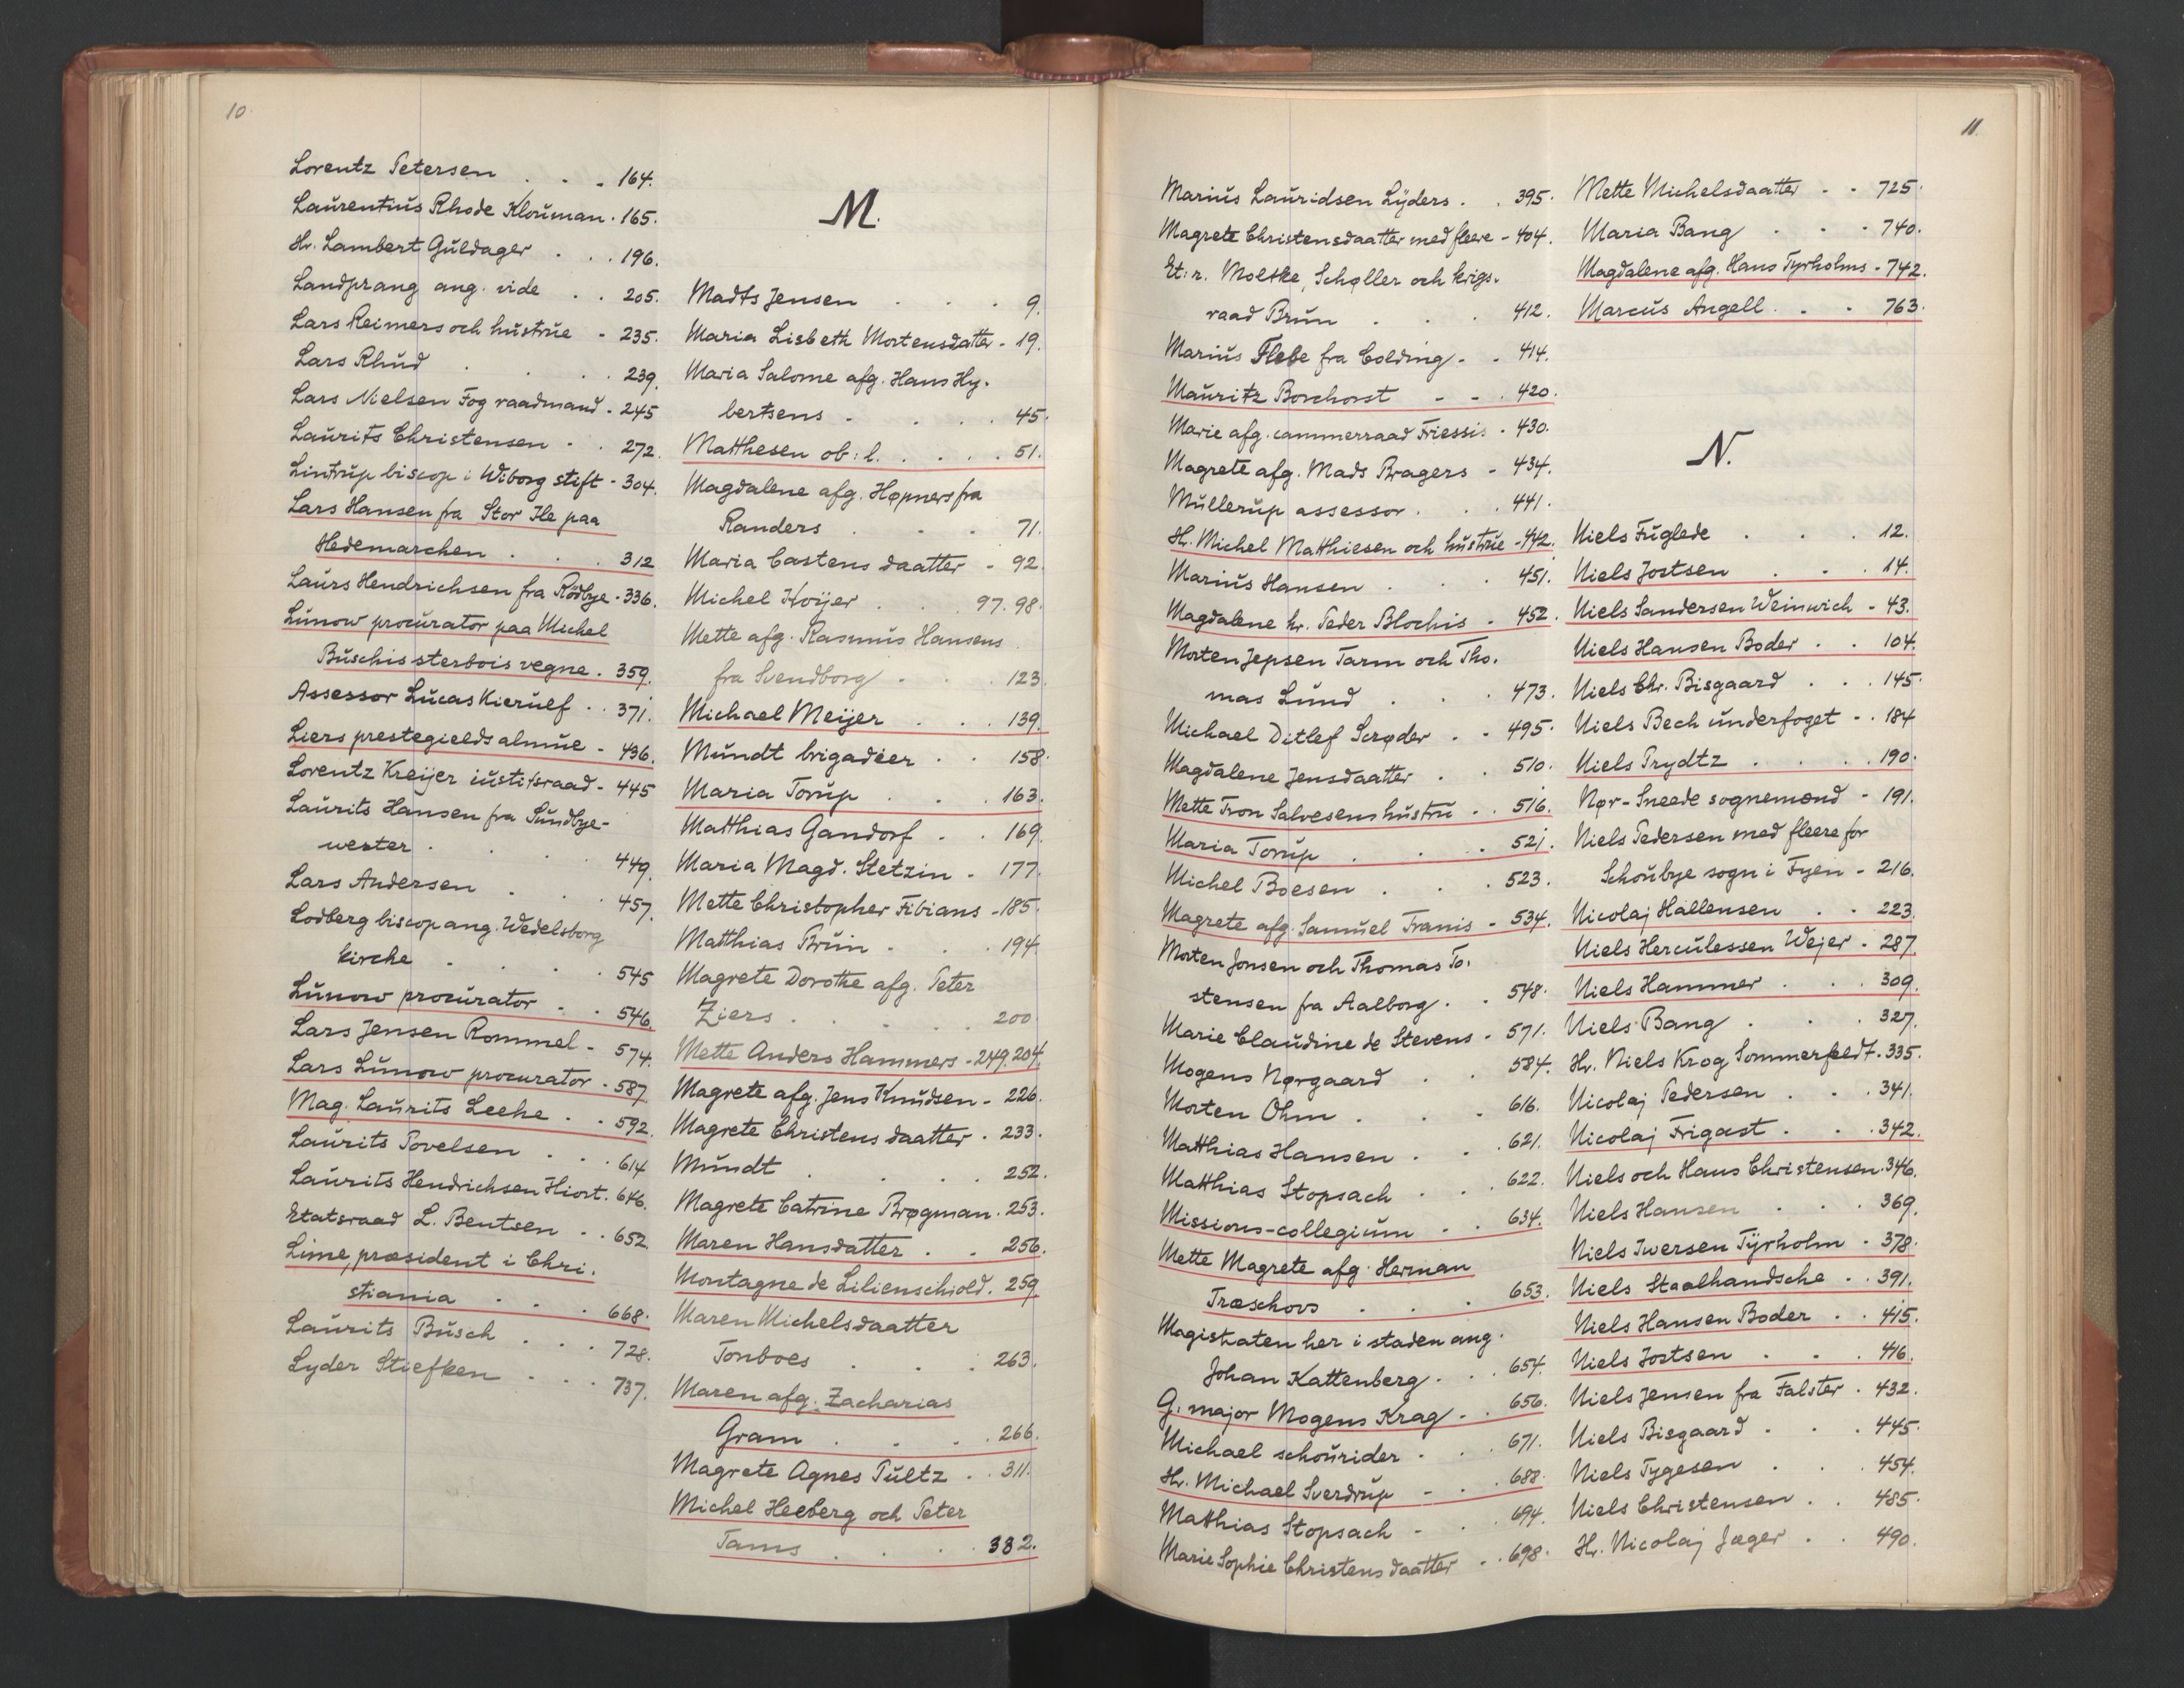 10.
Lorentz Petersen . . . 164.
Laurentius Rhode Klouman . 165.
Hr. Lambert Guldager . . . 196.
Landprang ang. vide . . 205.
Lars Reimers och hustrue - 235.
Lars Rhud . . . . 239.
Lars Nielsen Fog raadmand - 245
Laurits Christensen . . 272.
Lintrup biscop i Wiborg stift - 304.
Lars Hansen fra Stor Ile paa
Hedemarchen . . . 312
Laurs Hendrichsen fra Rödbye - 336.
Lunow procurator paa Michel
Buschis sterbois vegne . 359.
Assessor Lucas Kierulf . . 371.
Liers prestegields almue - 436.
Lorentz Kreijer iustitsraad - 445
Laurits Hansen fra Sundbye-
wester . . . . 449.
Lars Andersen . . . 457.
Lodberg biscop ang. Wedelsborg
kirche . . . . 545
Lunow procurator . . . 546.
Lars Jensen Rommel - 574.
Lars Lunow procurator . 587.
Mag. Laurits Leehe . . 592.
Laurits Povelsen . . . 614
Laurits Hendrichsen Hiort . 646.
Etatsraad L. Bentsen . . 652.
Lime, præsident i Chri.
stiania . . . . 668.
Laurits Busch . . . 728.
Lyder Stiefken . . . 737.
M.
Madts Jensen . . . 9.
Maria Lisbeth Mortensdatter - 19.
Maria Salome afg. Hans Hy-
bertsens . . . . 45.
Matthesen ob: l. . . . . 51.
Magdalene afg. Høpners fra
Randers . . . 71.
Maria Castens daatter - 92.
Michel Hoijer . . . 97. 98.
Mette afg. Rasmus Hansens
fra Svendborg . . . 123.
Michael Meijer . . . 139.
Mundt brigadeer . . 158.
Maria Torup . . . 163.
Matthias Gandorf . . 169.
Maria Magd. Stetzin - 177.
Mette Christopher Fibians - 185.
Matthias Brun . . . 194.
Magrete Dorothe afg. Peter
Ziers . . . . . 200.
Mette Anders Hammers - 249. 204.
Magrete afg. Jens Knudsen - 226.
Magrete Christens daatter . 233.
Mundt . . . . 252.
Magrete Catrine Brøgman . 253.
Maren Hansdatter . . 256.
Montagne de Lilienschiold . 259.
Maren Michelsdaatter
Tonboes . . . 263.
Maren afg. Zacharias
Gram . . . . 266.
Magrete Agnes Pultz . . 311.
Michel Heeberg och Peter
Tams . . . . 332.
11.
Marius Lauridsen Lÿders . . 395.
Magrete Christensdaatter med fleere - 404.
Et: r. Moltke, Schøller och krigs-
raad Brun . . . 412.
Marius Flebe fra Colding - . 414.
Mauritz Borchorst - - . 420.
Marie afg. cammerraad Friessis . 430.
Magrete afg. Mads Bragers - 434.
Müllerup assessor . . . 441.
Hr. Michel Matthiesen och hustrue - 442.
Marius Hansen . . . 451.
Magdalene hr. Peder Blochis - 452.
Morten Jepsen Tarm och Tho-
mas Lund . . . 473.
Michael Ditlef Scrøder . . 495.
Magdalene Jensdaatter . . 510.
Mette Tron Salvesens hustru . . 516.
Maria Torup . . . 521.
Michel Boesen . . . 523.
Magrete afg. Samuel Franis - 534.
Morten Jonsen och Thomas To-
stensen fra Aalborg . . 548.
Marie Claudine de Stevens - 571.
Mogens Nørgaard . . 584.
Morten Ohm . . . 616.
Matthias Hansen . . . 621.
Matthias Stopsach . . . 622.
Missions-collegium . . 634.
Mette Magrete afg. Herman
Træschovs . . . 653.
Magistraten her i staden ang.
Johan Kattenberg . . . 654.
G. major Mogens Krag - . 656.
Michael schourider . . . 671.
Hr. Michael Sverdrup - . . 688.
Matthias Stopsach - . . 694.
Marie Sophie Christens daatter - . 698.
Mette Michelsdaatter - . 725.
Maria Bang . . . 740.
Magdalene afg. Hans Tyrholms - 742.
Marcus Angell . . . 763.
N.
Niels Fuglede . . . 12.
Niels Jostsen . . . 14.
Niels Sandersen Weinwich - 43.
Niels Hansen Boder . . 104.
Niels Chr. Bisgaard . . . 145.
Niels Bech underfoget - . 184
Niels Prydtz . . . . 190.
Nør-Sneede sognemænd - 191.
Niels Pedersen med fleere for
Schoubye sogn i Fyen - 216.
Nicolaj Hallensen . . 223.
Niels Herculessen Wejer - 287.
Niels Hammer . . . 309.
Niels Bang . . . 327.
Hr. Niels Krog Sommerfeldt . 335.
Nicolaj Pedersen . . . 341.
Nicolaj Frigast . . . 342.
Niels och Hans Christensen . 346.
Niels Hansen . . . 369.
Niels Iwersen Tÿrholm - 378.
Niels Staalhandsche . . 391.
Niels Hansen Boder . . 415.
Niels Jostsen . . . 416.
Niels Jensen fra Falster . 432.
Niels Bisgaard . . . 445.
Niels Tygesen . . . 454.
Niels Christensen . . 485.
Hr. Nicolaj Jæger . . 490.